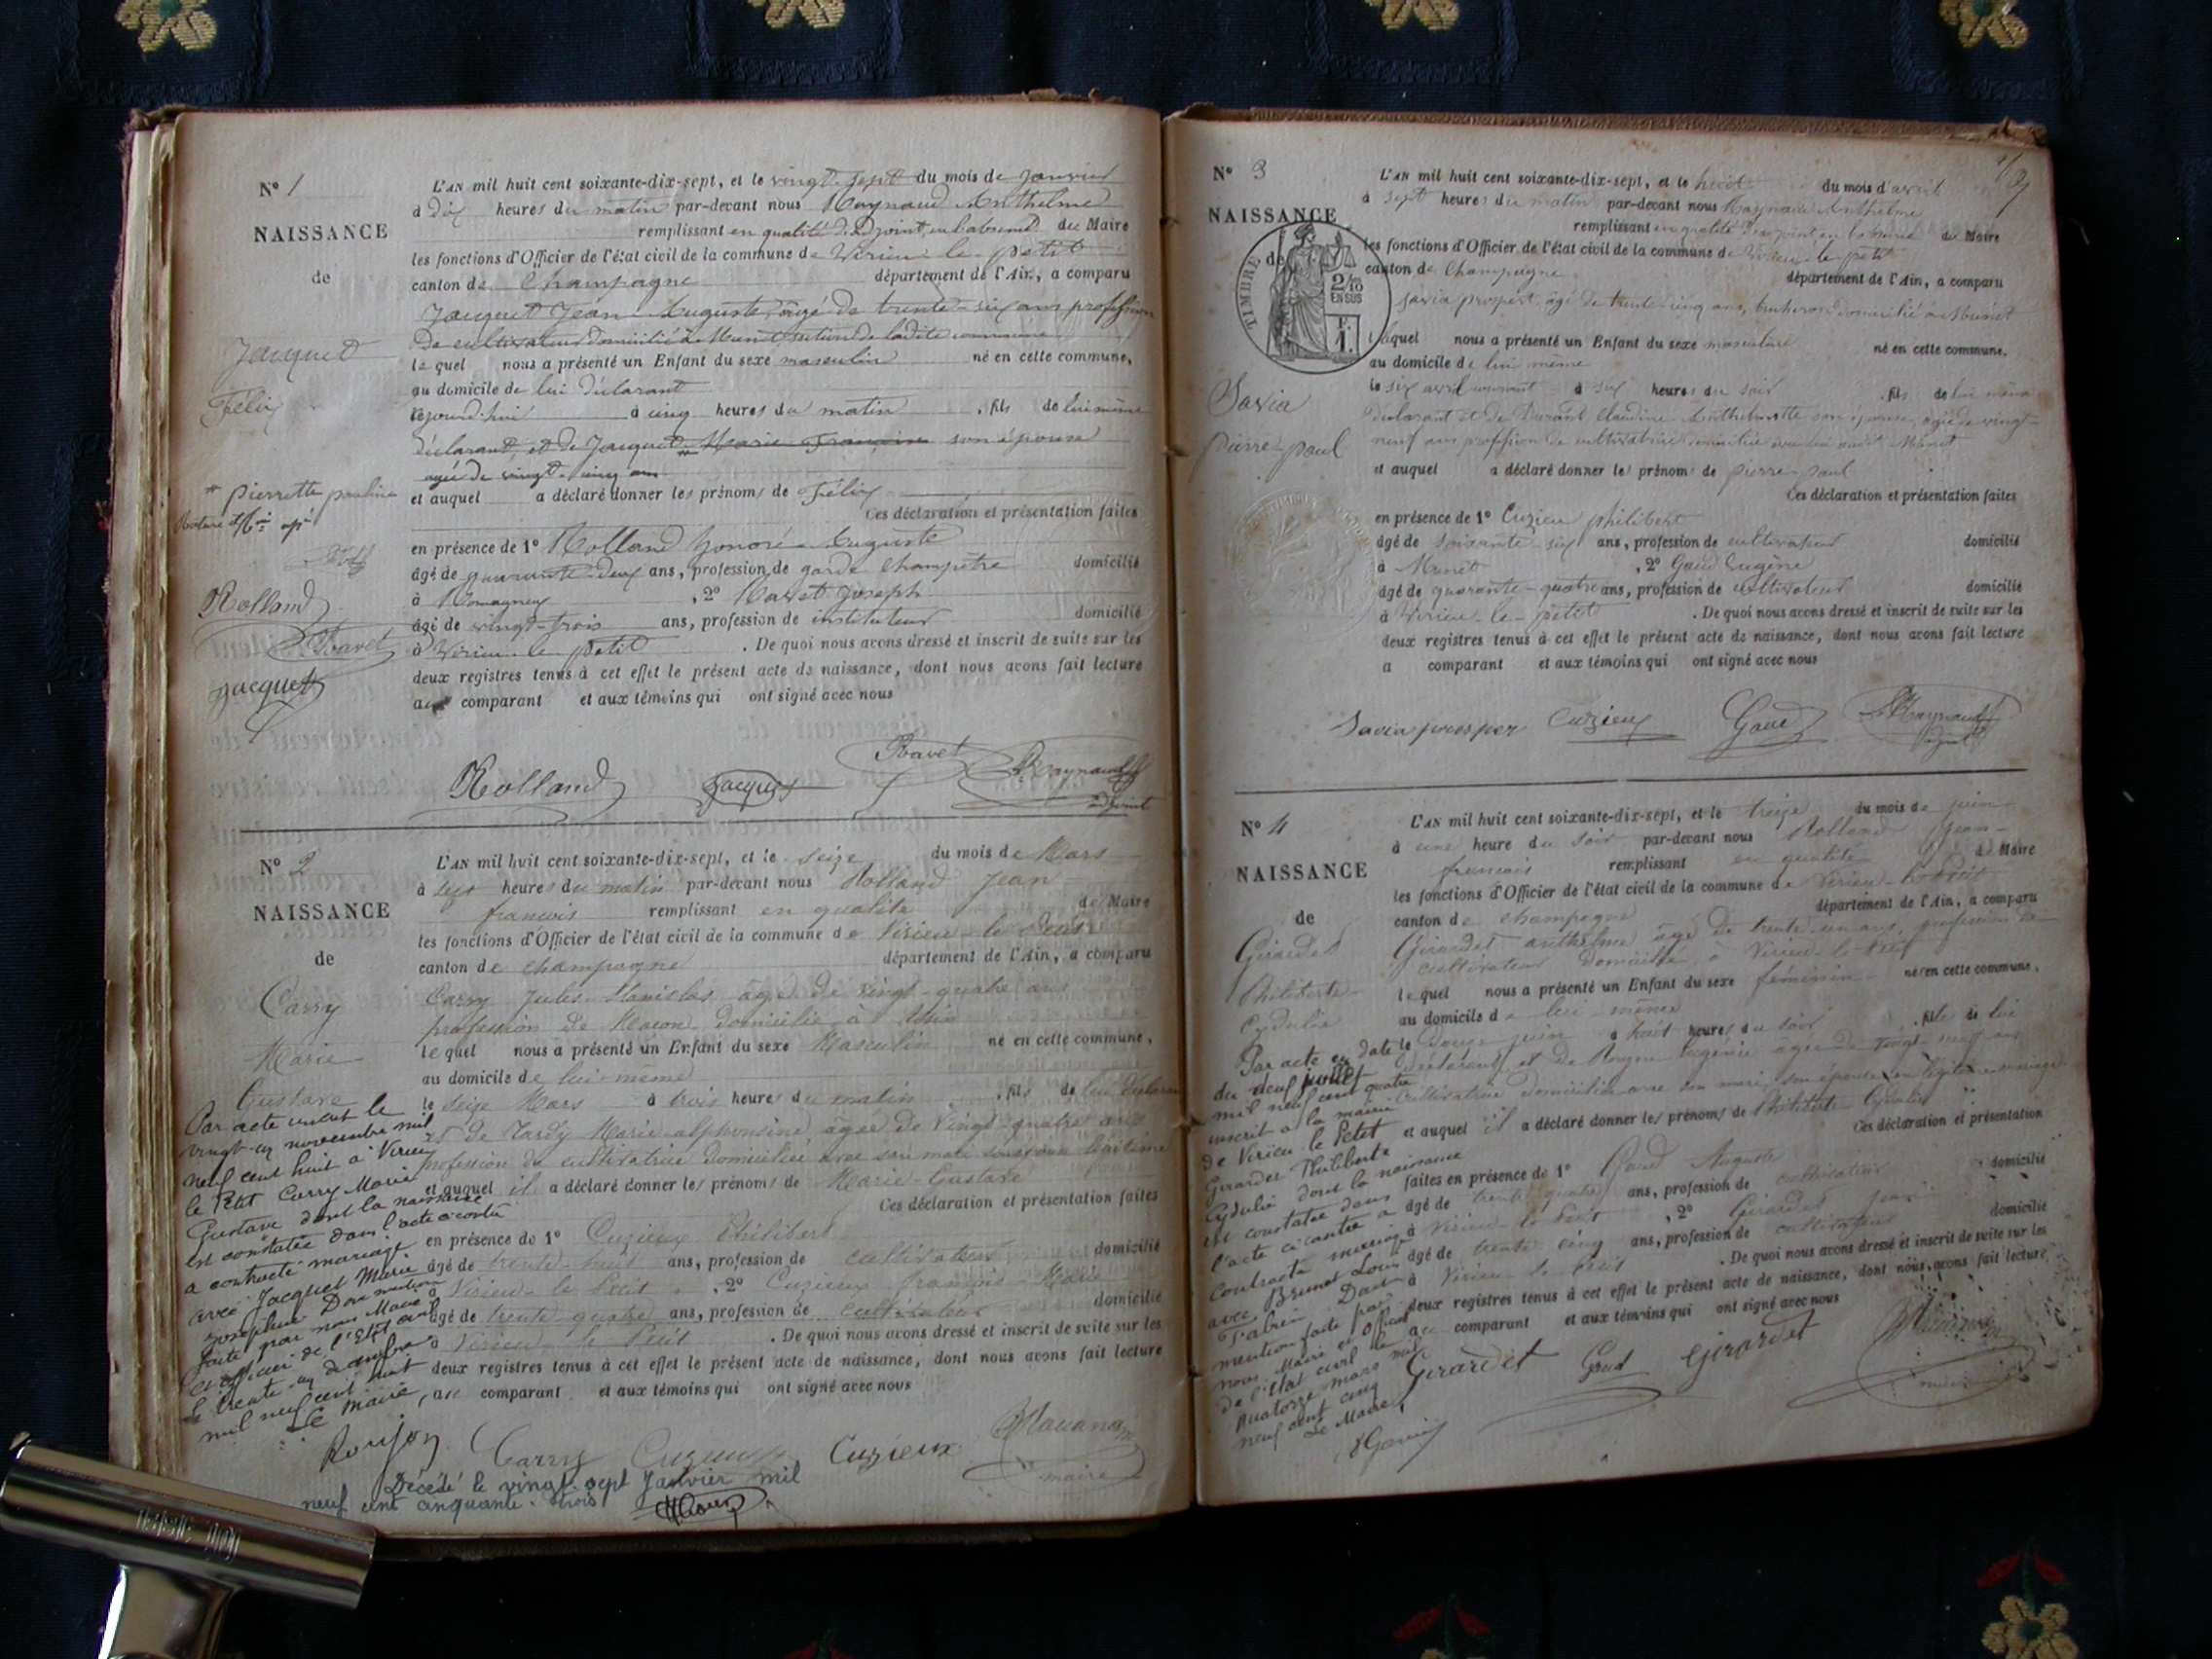 N° 1
NAISSANCE
de
Jacquet
Félix
* pierrette pauline
Rolland
Ravet
Jacquet
L'AN mil huit cent soixante-dix-sept, et le vingt-sept du mois de janvier
à dix heures du matin par-devant nous Raynaud Anthelme
remplissant en qualité d'adjoint, en l'absence du Maire
les fonctions d'Officier de l'état civil de la commune de Virieu-le-petit
canton de Champagne département de l'Ain, a comparu
Jacquet Jean Auguste, âgé de trente-six ans profession
de cultivateur domicilié à Munet section de ladite commune
lequel nous a présenté un Enfant du sexe masculin né en cette commune,
au domicile de lui déclarant
cejourd'hui à cinq heures du matin, fils de lui même
déclarant, et de Jacquet * Marie Françoise son épouse
agée de vingt-cinq ans
et auquel a déclaré donner les prénoms de Félix
Ces déclaration et présentation faites
en présence de 1° Rolland honoré Auguste
âgé de quarante-deux ans, profession de garde champêtre domicilié
à Romagneux, 2° Ravet Joseph
âgé de vingt-trois ans, profession de instituteur domicilié
à Virieu-le-petit. De quoi nous avons dressé et inscrit de suite sur les
deux registres tenus à cet effet le présent acte de naissance, dont nous avons fait lecture
au comparant et aux témoins qui ont signé avec nous
Rolland Jacquet Ravet A. Raynaud
adjoint
N° 2
NAISSANCE
de
Carry
Marie
Gustave
L'AN mil huit cent soixante-dix-sept, et le seize du mois de Mars
à sept heures du matin par-devant nous Rolland Jean
francois remplissant en qualité de Maire
les fonctions d'Officier de l'état civil de la commune de Virieu-le-Petit
canton de champagne département de l'Ain, a comparu
Carry Jules Stanislas âgé de vingt-quatre ans
profession de Maçon domicilié à
lequel nous a présenté un Enfant du sexe Masculin né en cette commune,
au domicile de lui-même
le seize Mars à trois heures du matin, fils de lui déclarant
et de Tardy Marie alphonsine, âgée de Vingt-quatre ans
profession de cultivatrice domiciliée avec son mari légitime
et auquel il a déclaré donner les prénoms de Marie-Gustave
Ces déclaration et présentation faites
en présence de 1° Cuzieux Philibert
âgé de trente-huit ans, profession de cultivateur domicilié
à Virieu-le-Petit, 2° Cuzieux François Marie
âgé de trente quatre ans, profession de cultivateur domicilié
à Virieu-le-Petit. De quoi nous avons dressé et inscrit de suite sur les
deux registres tenus à cet effet le présent acte de naissance, dont nous avons fait lecture
au comparant et aux témoins qui ont signé avec nous
Par acte inscrit le
vingt-un novembre mil
neuf cent huit à Virieu
le Petit Carry Marie
Gustave dont la naissance
est constatée dans l'acte ci-contre
a contracté mariage
avec Jacquet Marie
Josephine Dont mention
faite par nous Maire
et officier de l'Etat civil
le trente-un décembre
mil neuf cent huit
Le Maire,
Roujon Carry Cuzieux Cuzieux
maire
Décédé le vingt sept Janvier mil
neuf cent cinquante-trois
N° 3
NAISSANCE
de
TIMBRE
2/10
EN SUS
Savia
pierre-paul
L'AN mil huit cent soixante-dix-sept, et le huit du mois d'avril
à sept heures du matin par-devant nous Raynaud Anthelme
remplissant en qualité d'adjoint, en l'absence du Maire
les fonctions d'Officier de l'état civil de la commune de Virieu-le-petit
canton de Champagne département de l'Ain, a comparu
Savia prosper, âgé de trente-cinq ans, bucheron domicilié à Munet
lequel nous a présenté un Enfant du sexe masculin né en cette commune,
au domicile de lui même
le six avril courant à six heures du soir, fils de lui même
déclarant et de Durand Claudine Anthelmette son épouse, agée de vingt-
neuf ans profession de cultivatrice domiciliée avec lui audit Munet
et auquel a déclaré donner les prénoms de pierre-paul
Ces déclaration et présentation faites
en présence de 1° Cuzieu philibert
âgé de soixante-six ans, profession de cultivateur domicilié
à Munet, 2° Gaud Eugène
âgé de quarante-quatre ans, profession de cultivateur domicilié
à Virieu-le-petit. De quoi nous avons dressé et inscrit de suite sur les
deux registres tenus à cet effet le présent acte de naissance, dont nous avons fait lecture
a comparant et aux témoins qui ont signé avec nous
Savia prosper Cuzieux Gaud A. Raynaud
adjoint
N° 4
NAISSANCE
de
Girardet
Philiberte
Cydulie
L'AN mil huit cent soixante-dix-sept, et le treize du mois de juin
à une heure du soir par-devant nous Rolland Jean-
francois remplissant en qualité de Maire
les fonctions d'Officier de l'état civil de la commune de Virieu-le-Petit
canton de champagne département de l'Ain, a comparu
Girardet anthelme âgé de trente-un ans, profession de
cultivateur domicilié à Virieu-le-Petit
lequel nous a présenté un Enfant du sexe féminin née en cette commune,
au domicile de lui-même
le douze juin à huit heures du soir, fille de lui
déclarant et de Roujon Eugénie âgée de vingt-neuf ans
cultivatrice domiciliée avec son mari, son épouse en légitime mariage
et auquel il a déclaré donner les prénoms de Philiberte Cydulie
Ces déclaration et présentation
faites en présence de 1° Gaud Auguste
âgé de trente quatre ans, profession de cultivateur domicilié
à Virieu-le-Petit, 2° Girardet Jean
âgé de trente cinq ans, profession de cultivateur domicilié
à Virieu-le-Petit. De quoi nous avons dressé et inscrit de suite sur les
deux registres tenus à cet effet le présent acte de naissance, dont nous avons fait lecture
au comparant et aux témoins qui ont signé avec nous
Par acte en date
du neuf juillet
mil neuf cent quatre
inscrit à la mairie
de Virieu le Petit
Girardet Philiberte
Cydulie dont la naissance
est constatée dans
l'acte ci contre a
contracté mariage
avec Brunet Louis
Fabien Dont
mention faite par
nous Maire et Officier
de l'état civil le
quatorze mars mil
neuf cent cinq
Le Maire,
Girardet Gaud Girardet
maire